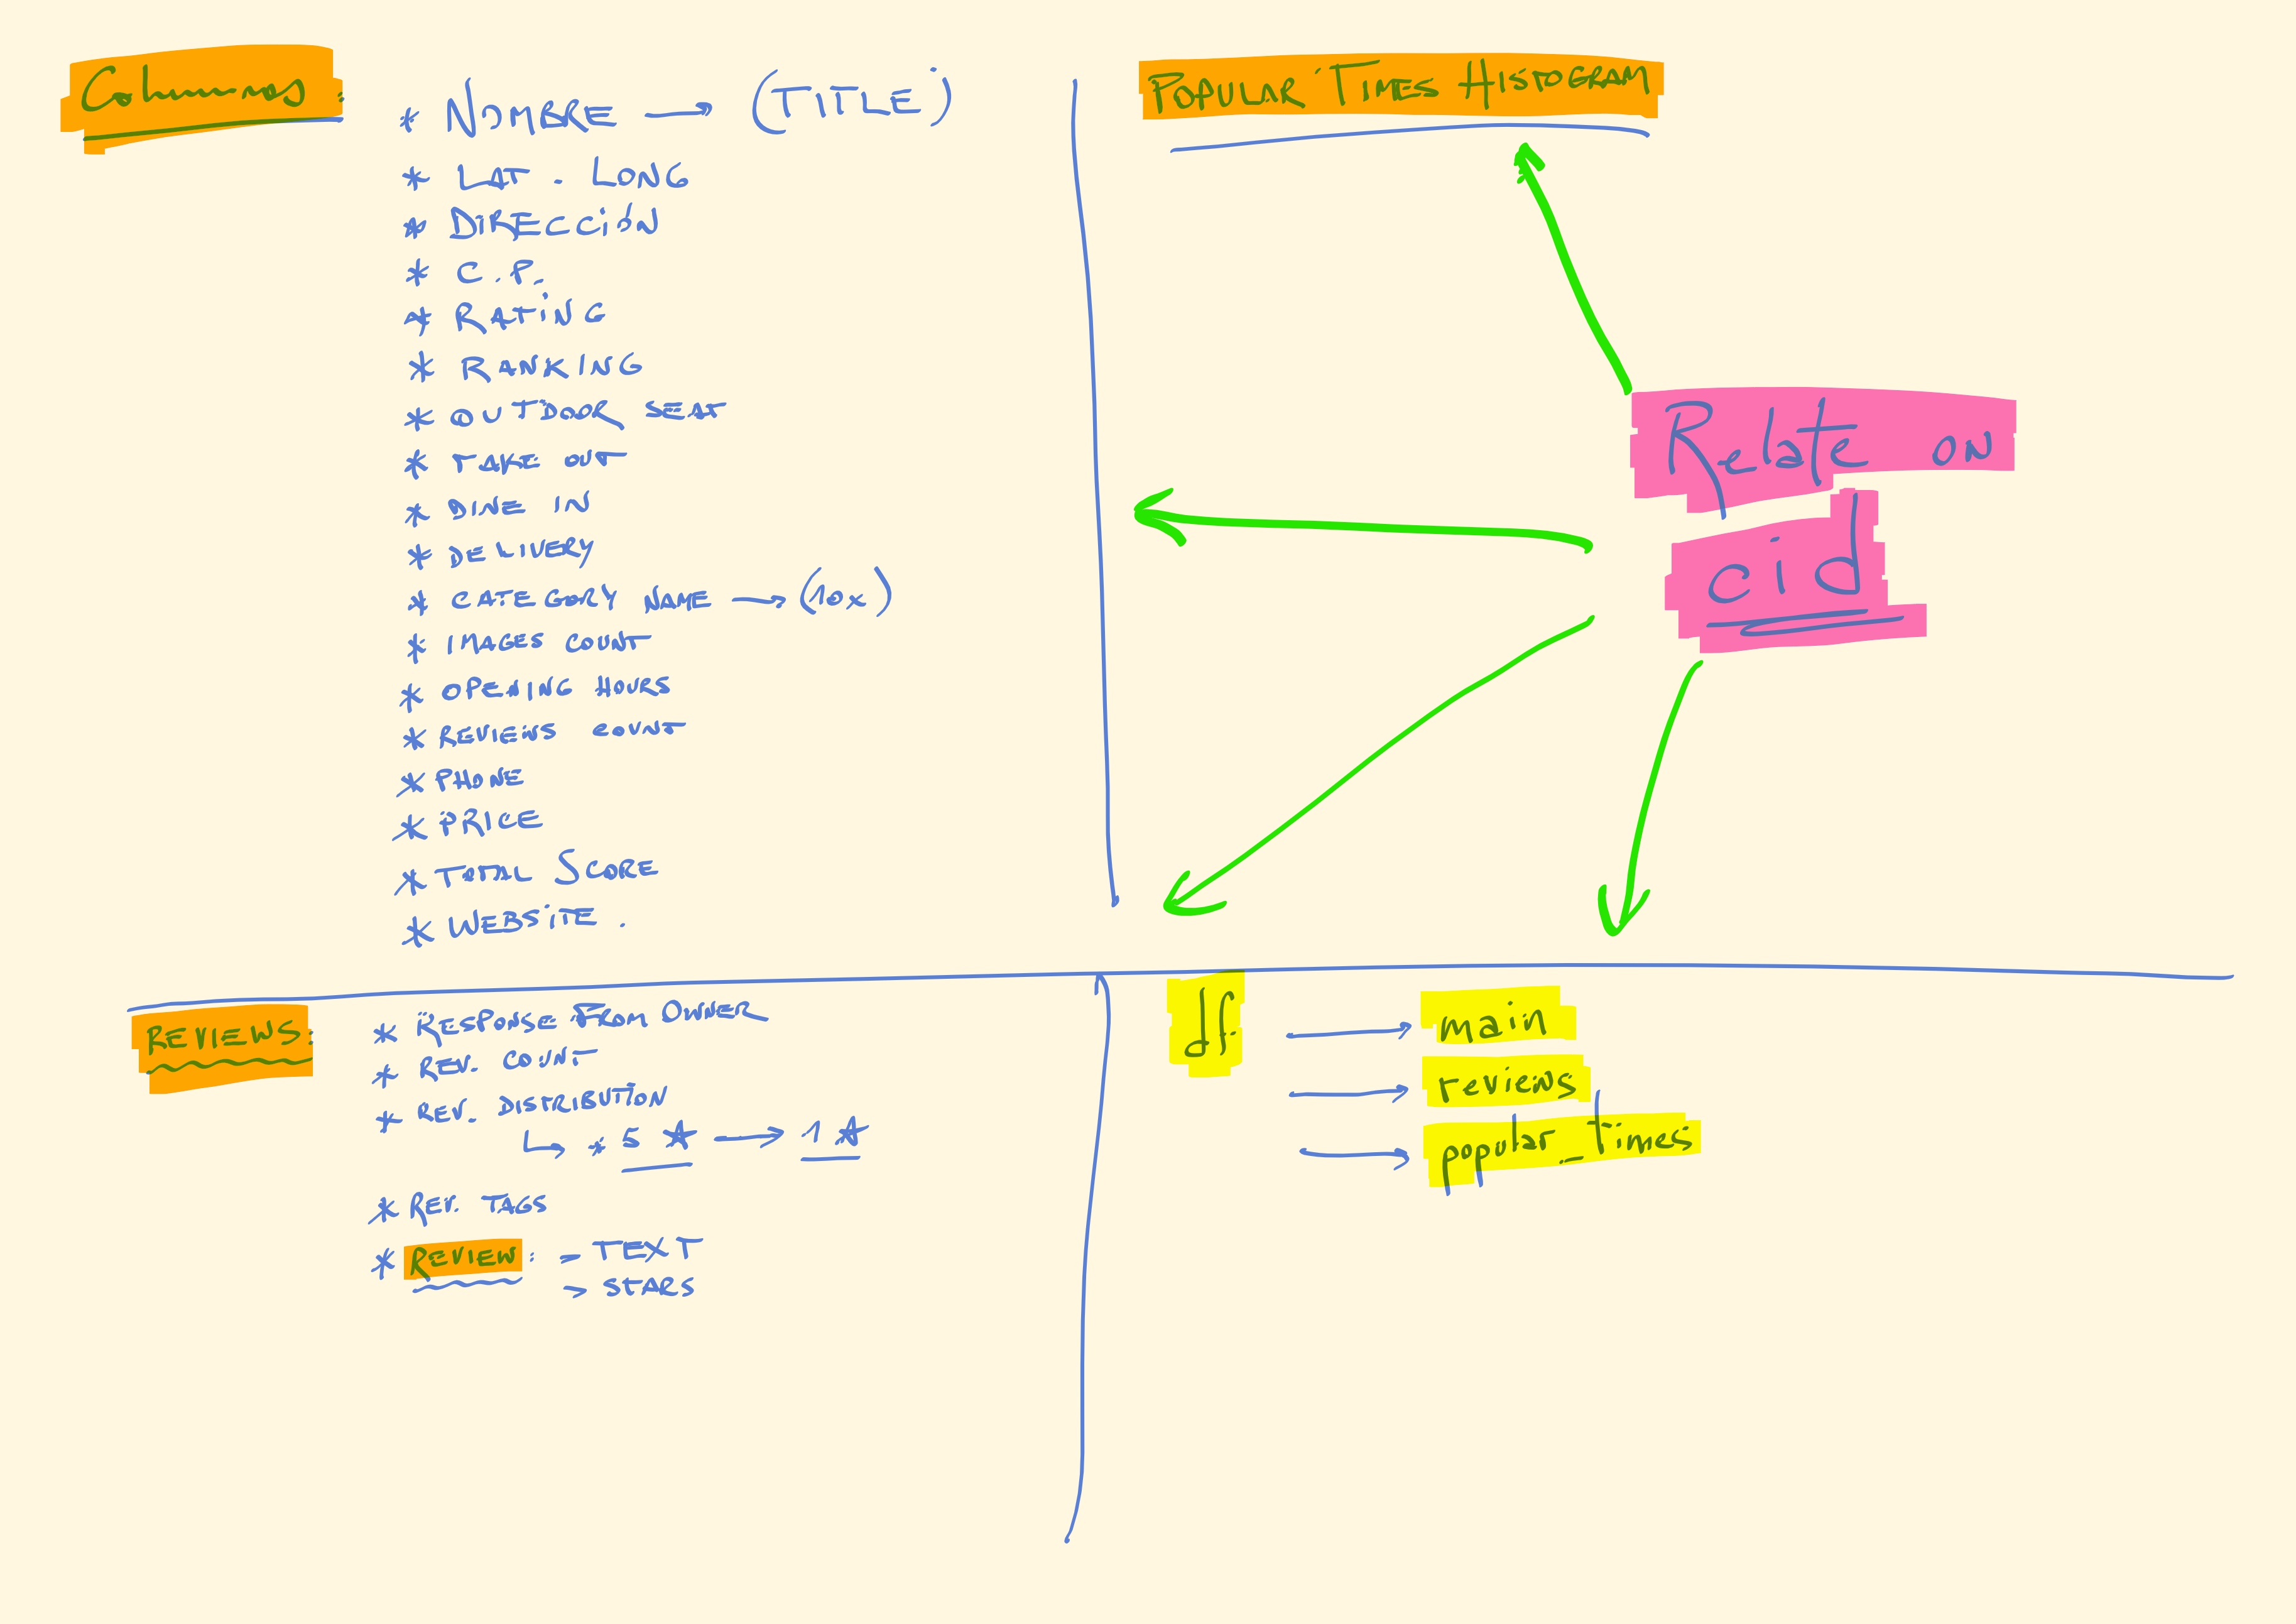 Columns:
* NOMBRE → (TITLE)
* LAT. LONG
* DIRECCIÓN
* C.P.
* RATING
* RANKING
* OUTDOOR SEAT
* TAKE OUT
* DINE IN
* DELIVERY
* CATEGORY NAME → (10x)
* IMAGES COUNT
* OPENING HOURS
* REVIEWS COUNT
* PHONE
* PRICE
* TOTAL SCORE
* WEBSITE.
POPULAR TIMES HISTOGRAM
Relate on
cid
REVIEWS:
* RESPONSE FROM OWNER
* REV. COUNT
* REV. DISTRIBUTION
↳ * 5 ★ → 1 ★
* REV. TAGS
* REVIEW: - TEXT
> STARS
df → main
→ reviews
→ popular_times